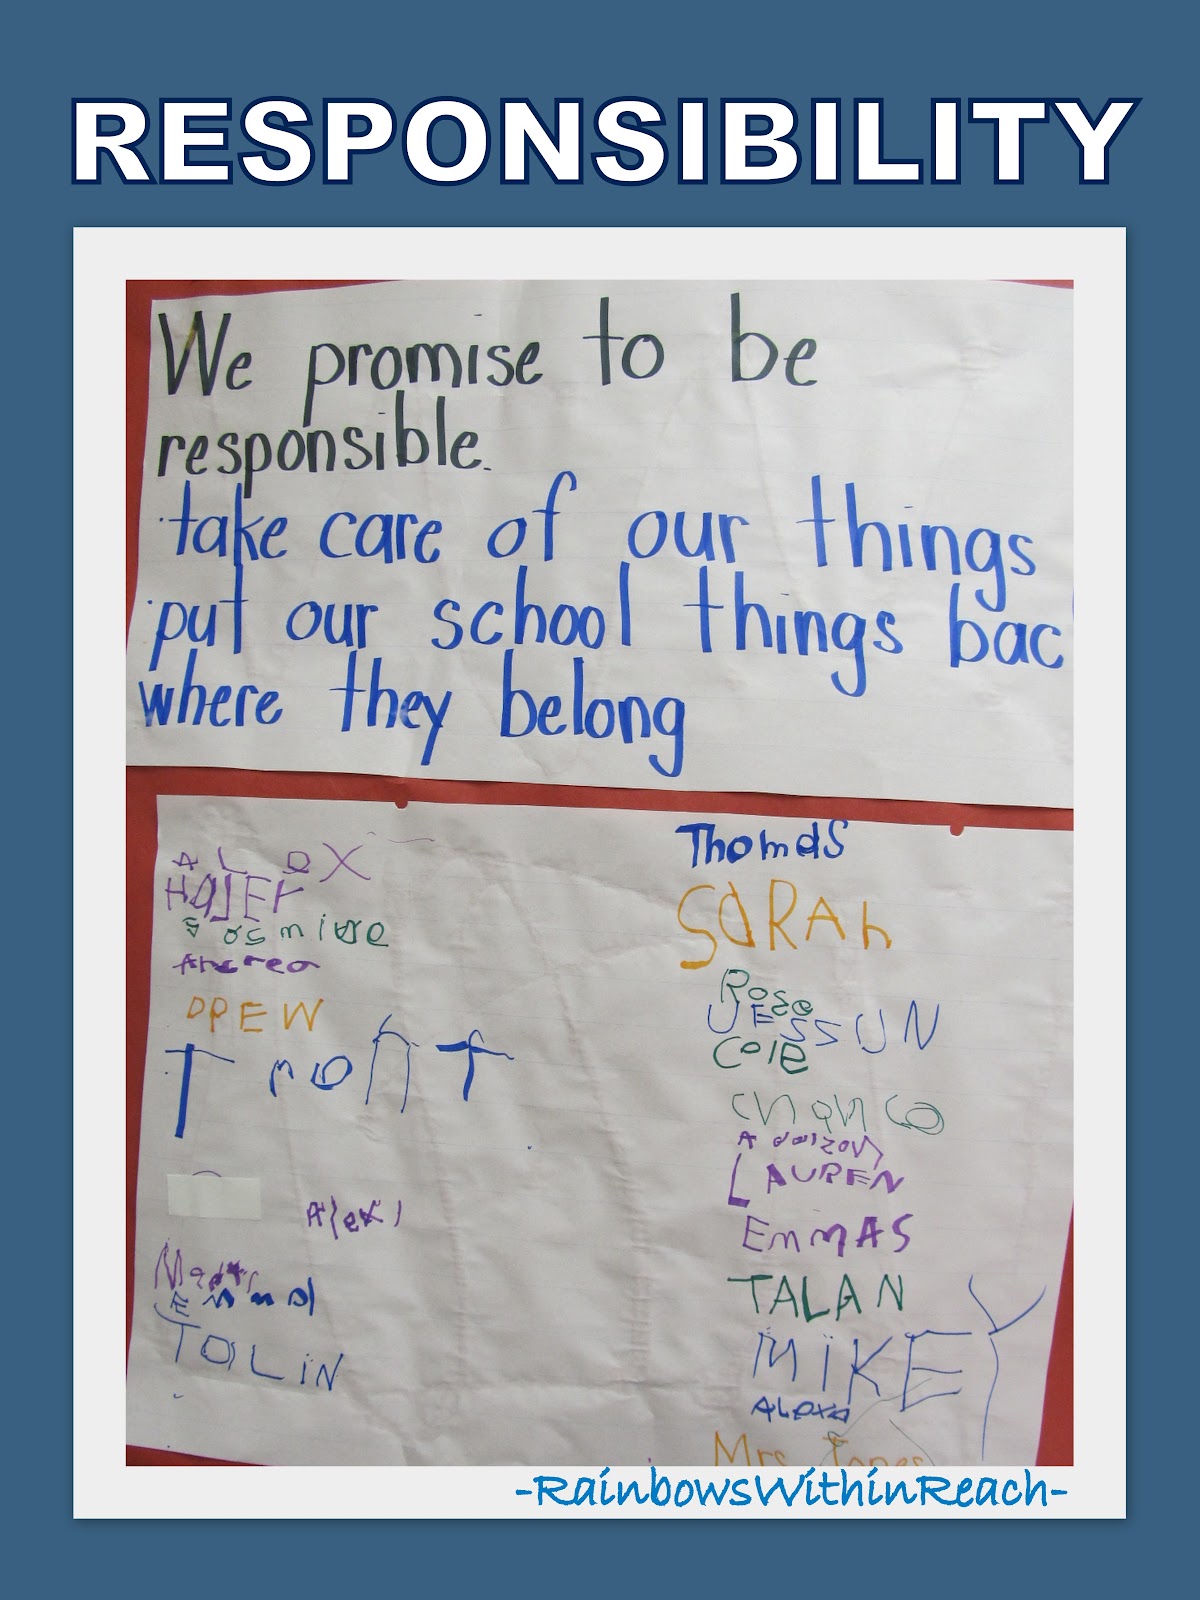 RESPONSIBILITY
We promise to be
responsible.
·take care of our things
·put our school things bac
where they belong
ALEX
Andrea
DREW
TrenT
Alexi
TALIN
Thomas
SARAh
Rose
JESSUN
Cole
Addison
LAUREN
EmmAS
TALAN
MiKEY
ALexa
Mrs. Jones
-RainbowsWithinReach-